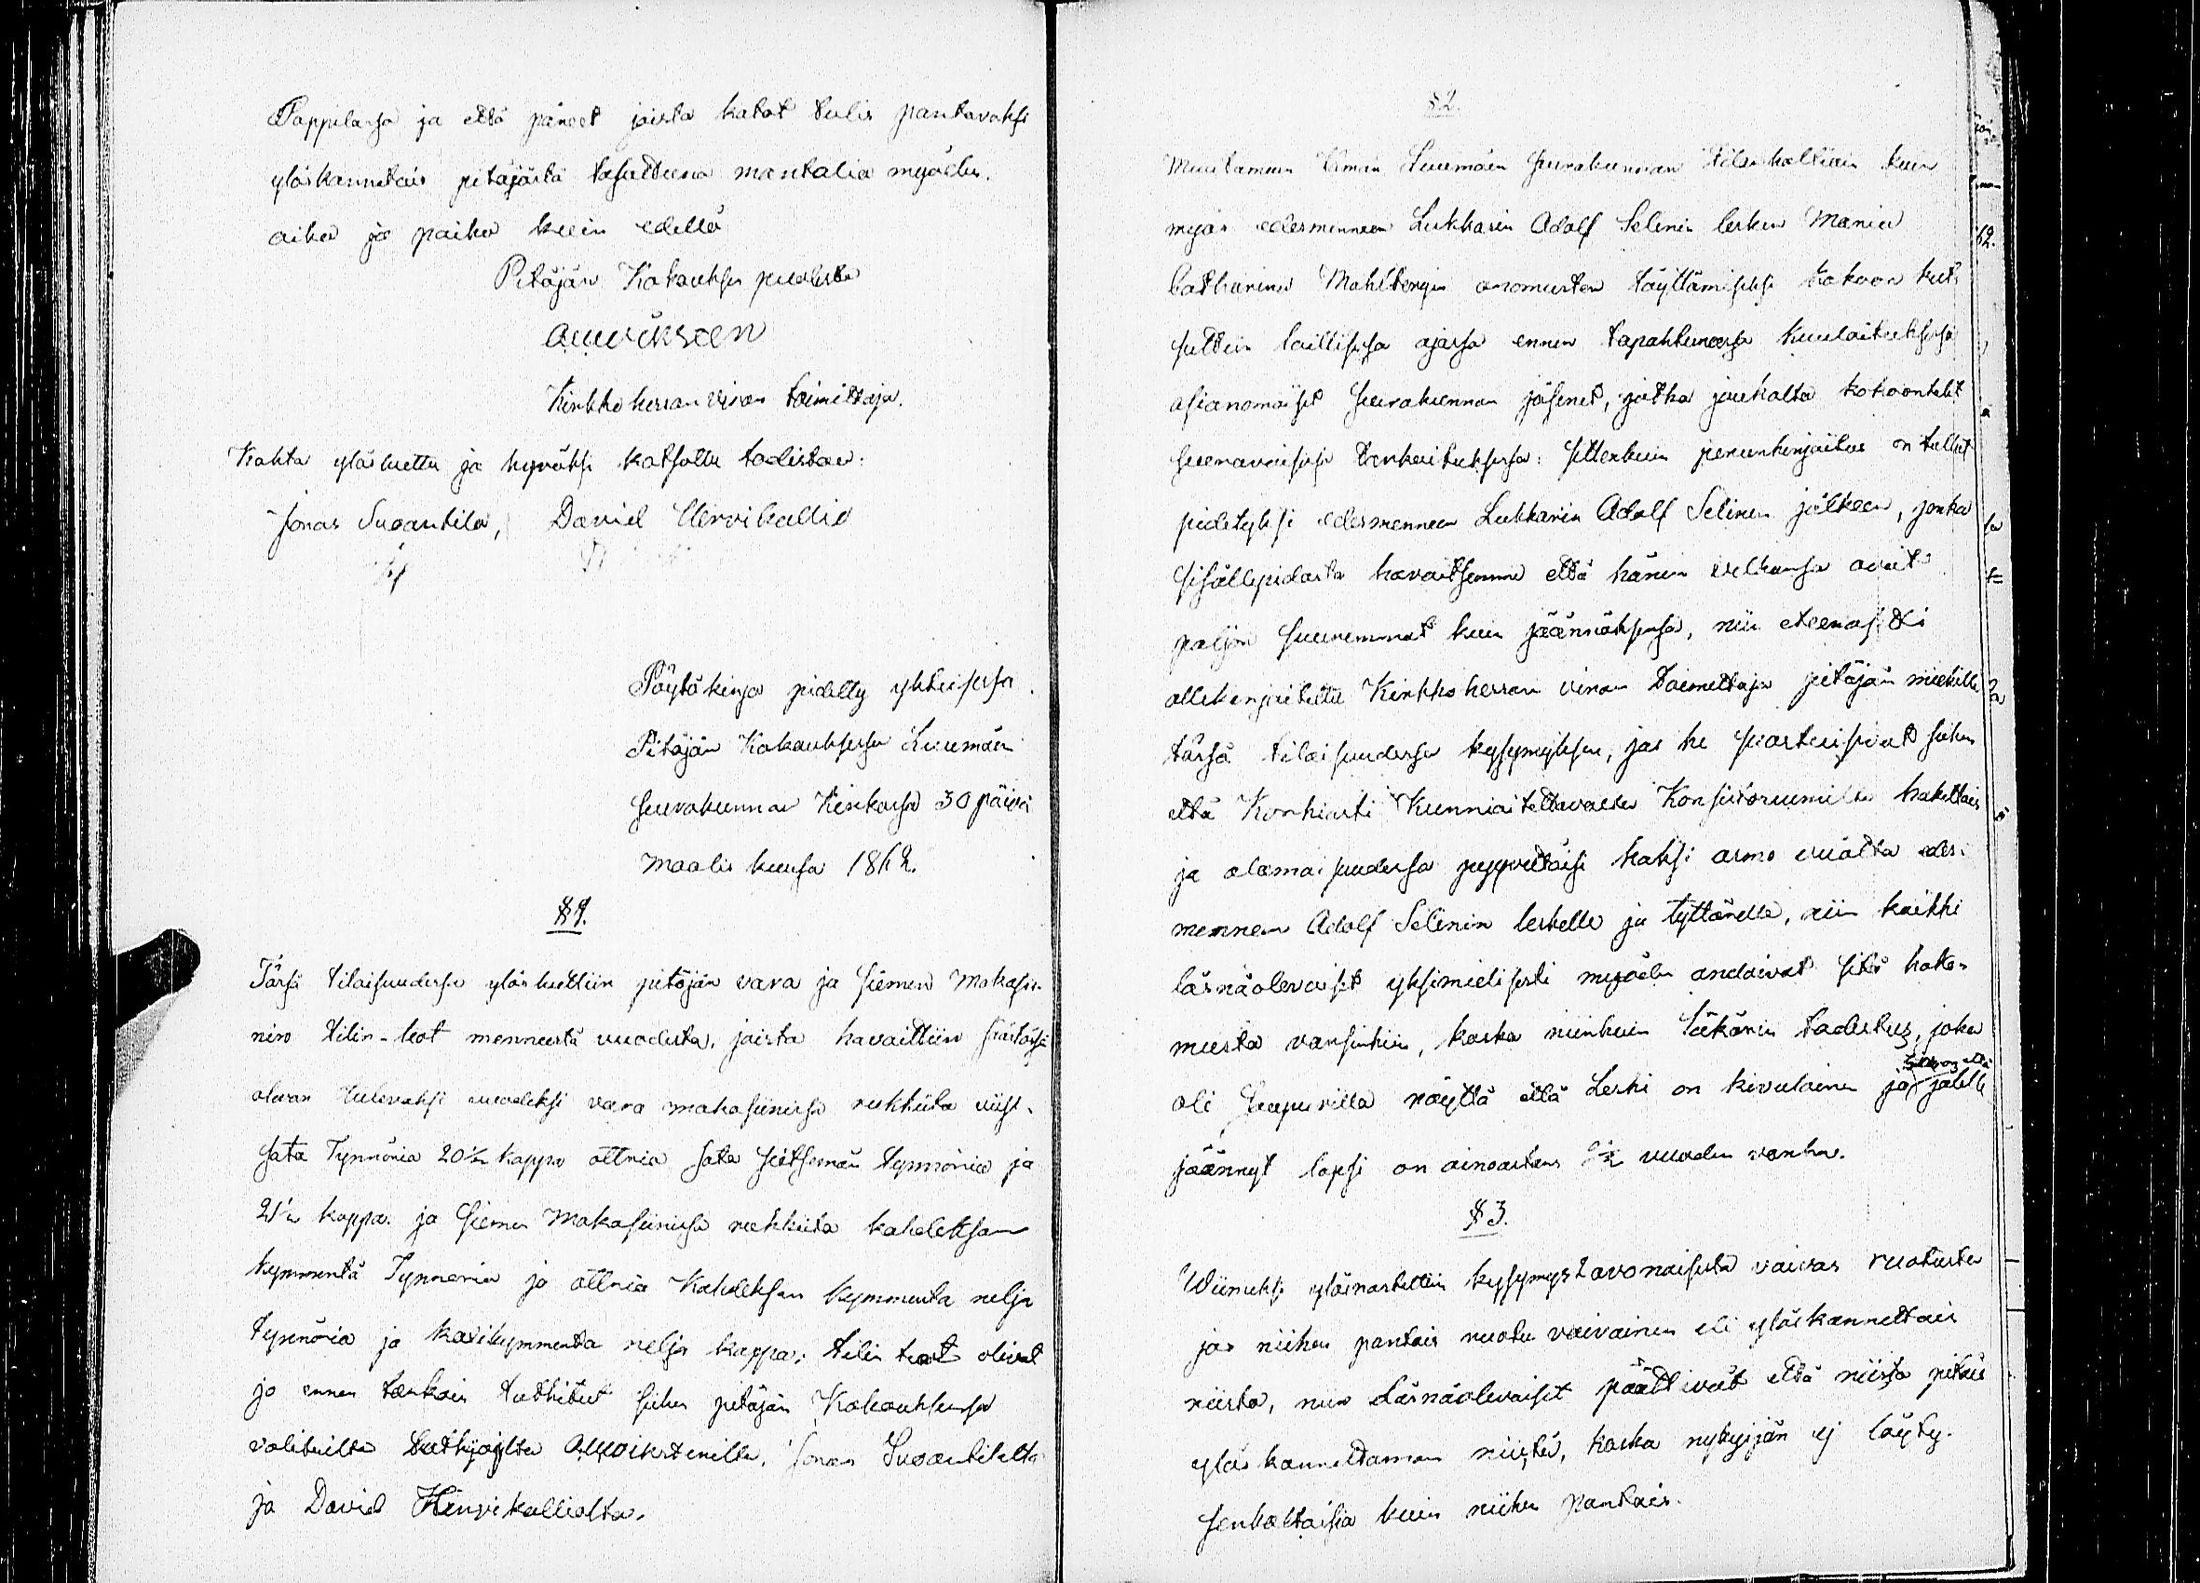 Pappilassa ja että päreet joista katot tulis pantavaksi
ylöskannetais pitäjästä tasattuna mantalia myöden.
aika ja paika kuin edellä
Pitäjän Kokouksen puolesta
Kirkkoherran viran toimittaja.
Kohta ylösluettu ja hyväksi katsottu todistaa:
Jonas Suoantila, David Hirvikallio
Pöytäkirja pidetty yhteisessä
Pitäjän Kokouksessa Luumäen
seurakunnan Kirkossa 30 päivä
Maalis kuussa 1862.
§ 1.
Tässä tilaisuudessa ylösluettiin pitäjän vara ja siemen Makasii-
nin tilin-teot menneestä vuodesta, joista havaittiin säästössä
olevan tulevaksi vuodeksi vara makasiinissa rukkiita viisi-
sata Tynnöriä 20½ kappa ottria sata seitsemän tynnöriä ja
21½ kappa. ja siemen Makasiinissa rukkiita kahdeksan
kymmentä Tynnöria ja ottria Kahdeksan kymmenta nelja
tynnöria ja kaxikymmenta nelja kappa; tilin teot olivat
jo ennen tarkoin tutkitut siihen pitäjän Kokouksessa
valituilta tutkijoilta Jonas Suoantilalta
ja David Hirvikalliolta.
§ 2.
Muutamain Luumäen seurakunnan tilanhaltiain kuin
myös edesmenneen Lukkarin Adolf Selinin lesken Maria
Catharina anomusten täyttämiseksi kokoon kut-
suttiin laillisessa ajassa ennen tapahtuneessa kuulutuksessa
asianomaiset seurakunnan jäsenet, jotka joukolta kokoontulit
seuraavaisessa tarkoituksessa: sittenkuin perunkirjoitus on tullut
pidetyksi edesmenneen Lukkarin Adolf Selinin jälkeen, jonka
sisällepidosta havaitsemme että hänen velkansa ovat
paljon suuremmat kuin jäännöksensä, niin eteenasetti
allekirjoitettu Kirkkoherran viran Toimittaja pitäjän miehille
tässä tilaisuudessa kysymyksen, jos he suostuisivat siihen
että Korkiasti Kunnioitettavalta Konsistoriumilta haettais
ja alamaisuudessa pyyvettäisi kaksi armo vuotta edes-
menneen Adolf Selinin leskelle ja tyttärelle, niin kaikki
läsnäolevaiset yksimielisesti myöden andoivat sitä hake-
musta varsinkin, koska niinkuin Läkärin todistus, joka
oli saapuvilla näyttä että Leski on kivulainen ja jälelle
jäännyt lapsi on ainoastans vuoden vanha.
§ 3.
Wiimeksi ylösnostettiin kysymys avonaisista vaivas ruotuista
jos niihin pantais ruotu vaivainen eli ylöskannettais
niistä, niin Läsnäolevaiset päättivät että niistä pitäis
ylös kannettaman niistä, koska nykyjän ej löydy
senkaltaisia kuin niihin pantais.